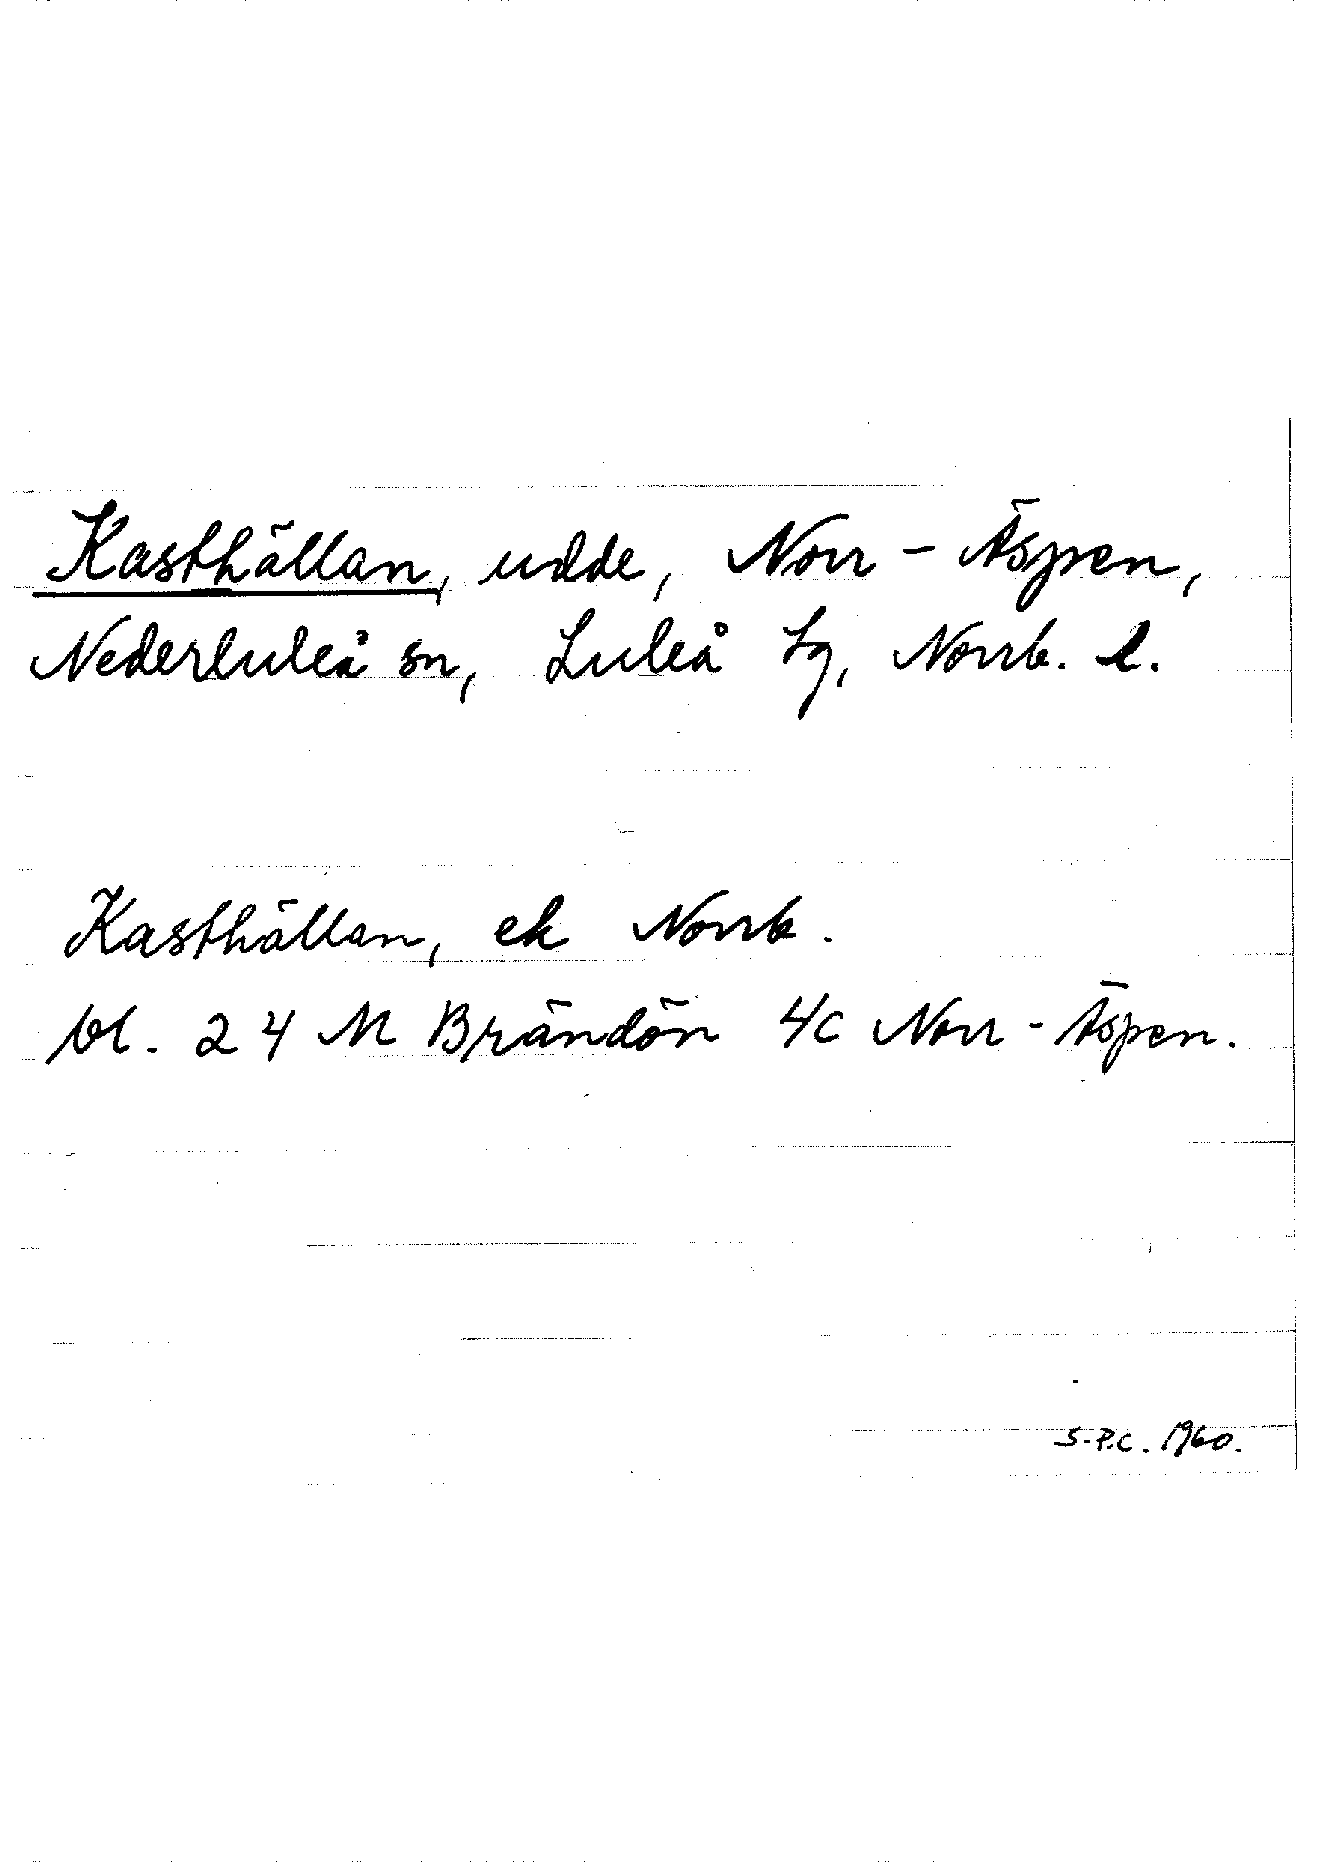 Kasthällan, udde, Norr-Äspen,
Nederluleå sn, Luleå tg, Norrb. l.
Kasthällan, ek Norrb.
bl. 24 M Brändön 4c Norr-Äspen.
S-P.C. 1960.